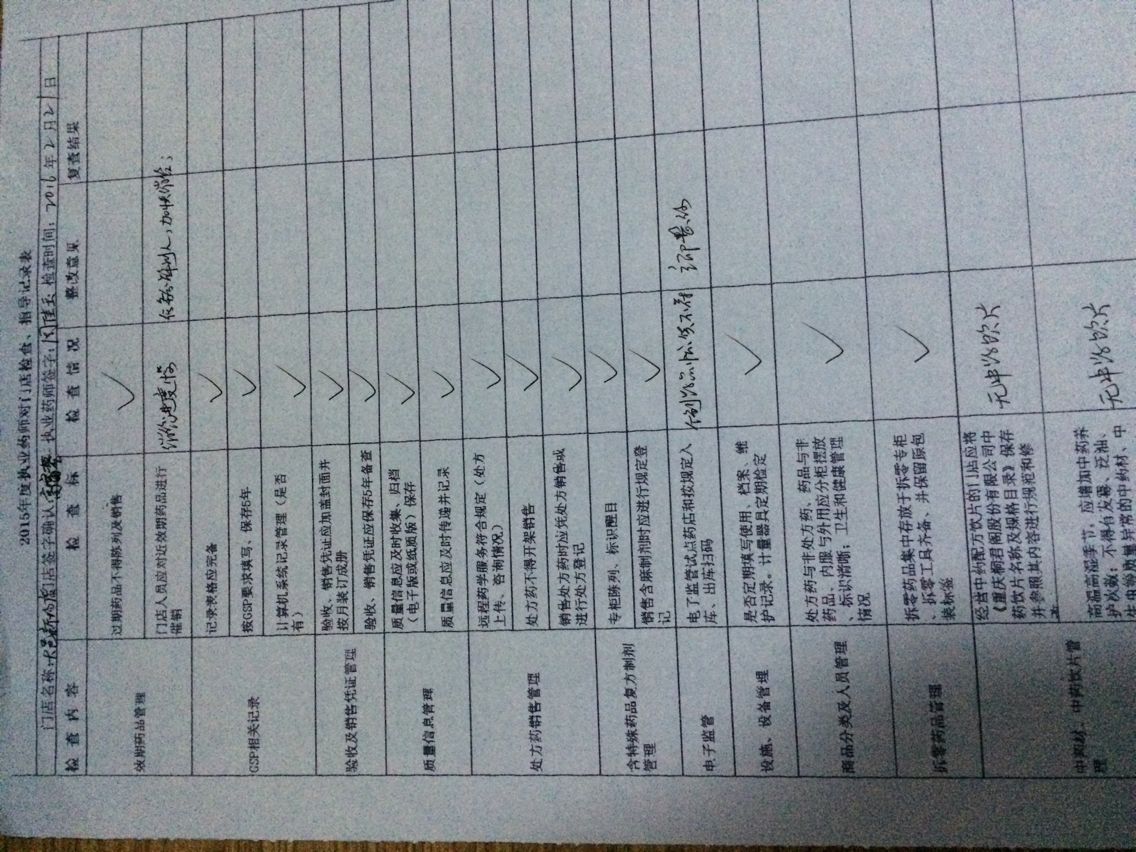 2015年度执业药师对门店检查、指导记录表
门店名称: 店签字确认: 执业药师签字: 检查时间: 2016年2月21日
检查内容 检查标 检查情况 整改意见 复查结果
效期药品管理
过期药品不得陈列及销售 ✓
门店人员应对近效期药品进行
催销
GSP相关记录
记录表格应完备 ✓
按GSP要求填写、保存5年 ✓
计算机系统记录管理(是否
有) ✓
验收及销售凭证管理
验收、销售凭证应加盖封面并
按月装订成册 ✓
验收、销售凭证应保存5年备查 ✓
质量信息管理
质量信息应及时收集、归档
(电子版或纸质版)保存 ✓
质量信息应及时传递并记录 ✓
处方药销售管理
远程药学服务符合规定(处方
上传、咨询情况) ✓
处方药不得开架销售 ✓
销售处方药时应凭处方销售或
进行处方登记 ✓
含特殊药品复方制剂
管理
专柜陈列、标识醒目 ✓
销售含麻制剂时应进行规定登
记 ✓
电子监管
电子监管试点药店和按规定入
库、出库扫码
设施、设备管理
是否定期填写使用、档案、维
护记录。计量器具定期检定 ✓
商品分类及人员管理
处方药与非处方药、药品与非
药品、内服与外用应分柜摆放
、标识清晰、卫生和健康管理
情况 ✓
拆零药品管理
拆零药品集中存放于拆零专柜
、拆零工具齐备、并保留原包
装标签 ✓
中药材、中药饮片管
理
经营中药配方饮片的门店应将
《重庆桐君阁股份有限公司中
药饮片名称及规格目录》保存
并参照其内容进行规范和修
无中药饮片
高温高湿季节,应增加中药养
护次数;不得有发霉、泛油、
生虫等质量异常的中药材、中
无中药饮片